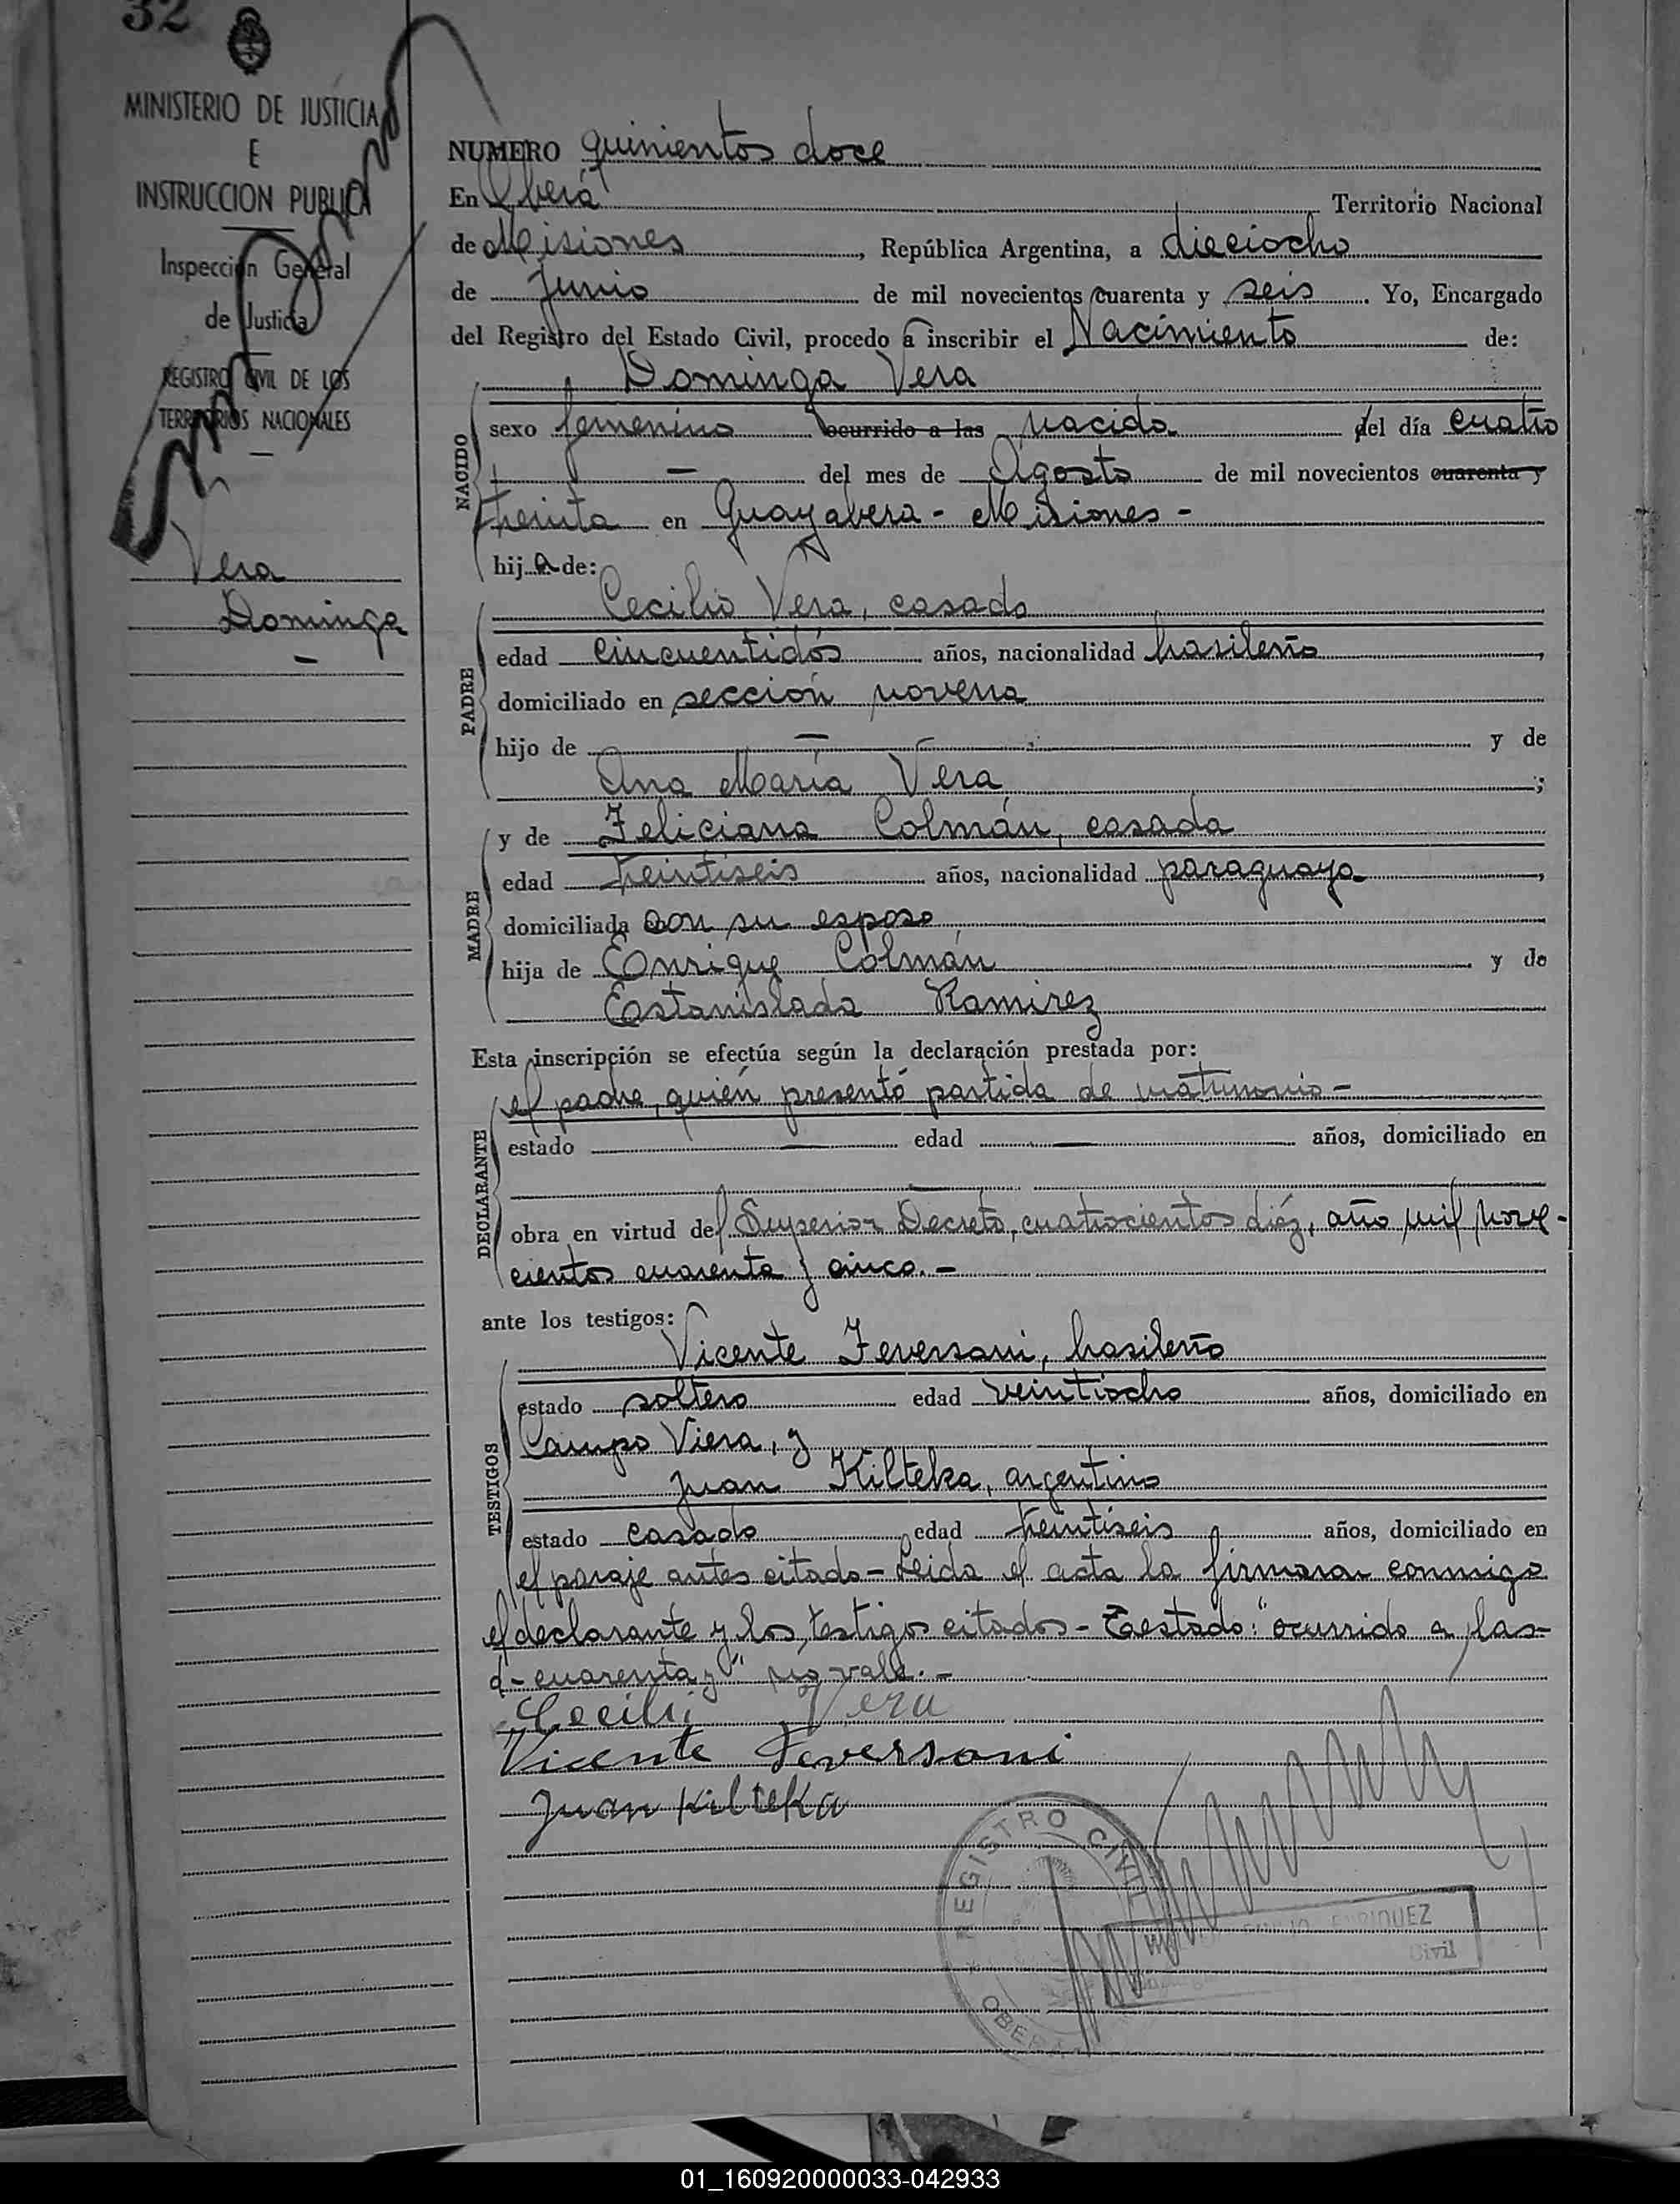 32
MINISTERIO DE JUSTICIA
E
INSTRUCCION PUBLICA
Inspección General
de Justicia
REGISTRO CIVIL DE LOS
TERRITORIOS NACIONALES
Vera
Dominga
NUMERO quinientos doce
En Oberá Territorio Nacional
de Misiones, República Argentina, a dieciocho
de Junio de mil novecientos cuarenta y seis. Yo, Encargado
del Registro del Estado Civil, procedo a inscribir el Nacimiento de:
Dominga Vera
NACIDO
sexo femenino ocurrido a las nacida del día cuatro
— del mes de Agosto de mil novecientos cuarenta y
treinta en Guayabera - Misiones -
hija de:
PADRE
Cecilio Vera, casado
edad cincuentidós años, nacionalidad brasileño,
domiciliado en sección novena
hijo de — y de
Ana María Vera;
MADRE
y de Feliciana Colmán, casada
edad treintiseis años, nacionalidad paraguaya,
domiciliada con su esposo
hija de Enrique Colmán y de
Estanislada Ramirez
Esta inscripción se efectúa según la declaración prestada por:
DECLARANTE
el padre, quién presentó partida de matrimonio -
estado — edad — años, domiciliado en
—
obra en virtud del Superior Decreto, cuatrocientos diéz, año mil nove-
cientos cuarenta y cinco. -
ante los testigos:
TESTIGOS
Vicente Feversani, brasileño
estado soltero edad veintiocho años, domiciliado en
Campo Viera, y
Juan Kilteka, argentino
estado casado edad treintiseis años, domiciliado en
el paraje antes citado - Leida el acta la firmaron conmigo
el declarante y los testigos citados - Testado: "ocurrido a las-
d- cuarenta y" no vale. -
Cecilio Vera
Vicente Feversani
Juan Kilteka
REGISTRO CIVIL
OBERA
ENRIQUEZ
Civil
01_160920000033-042933